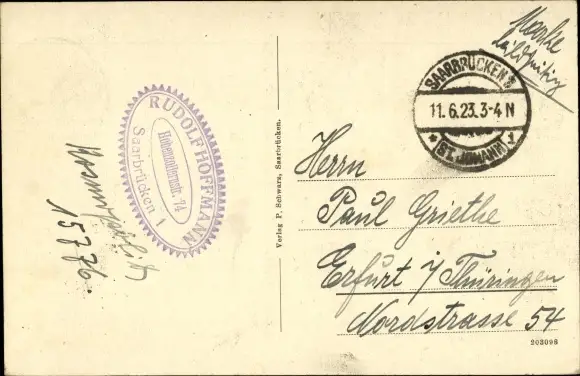 Marke
bildseitig
SAARBRÜCKEN 2
11.6.23.3-4 N
* (ST. JOHANN) 1
RUDOLF HOFFMANN
Hohenzollernstr. 74
Saarbrücken 1
15776.
Verlag P. Schwarz, Saarbrücken.
Herrn
Paul Griethe
Erfurt i/Thüringen
Nordstrasse 54
203098